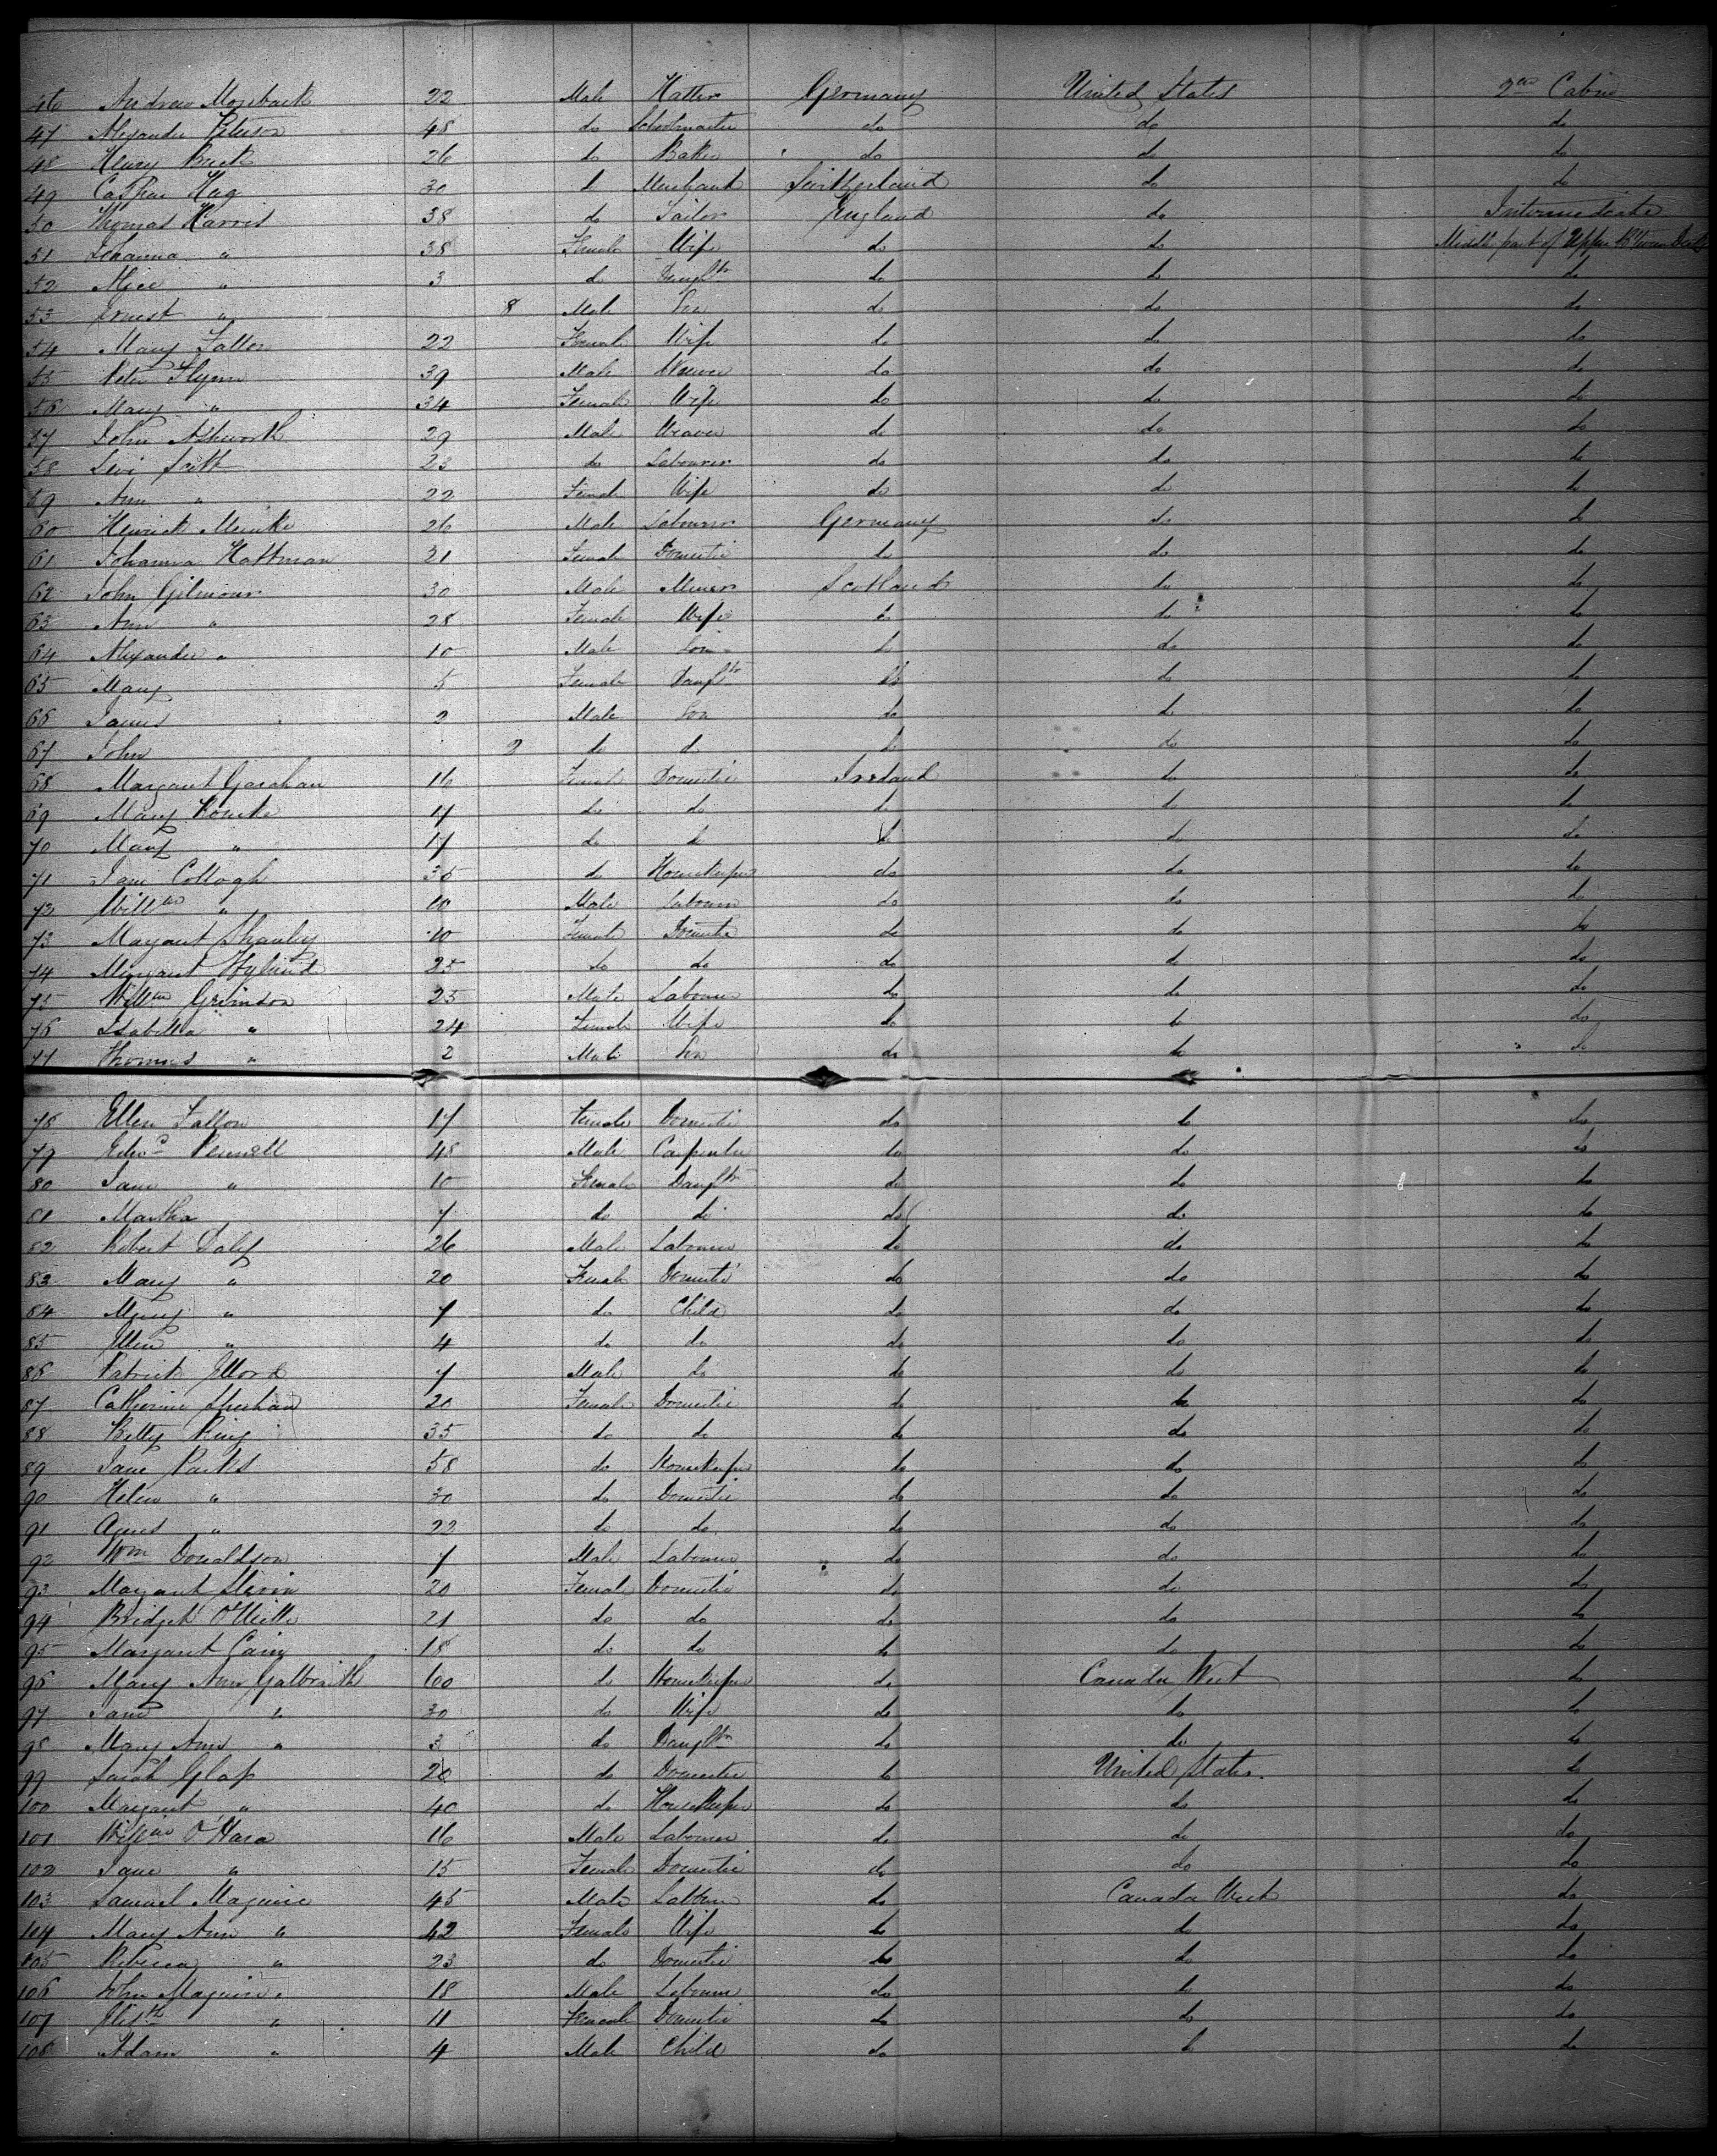 46 Andrew Mosebach 22 Male Hatter Germany United States 2nd Cabin
47 Alexander Peterson 48 do Schoolmaster do do do
48 Henry Buck 26 do Baker do do do
49 Caspar Hug 30 do Merchant Switzerland do do
50 Thomas Harris 38 do Tailor England do Intermediate
51 Johanna " 38 Female Wife do do Middle part of Upper Between Deck
52 Alice " 3 do Daughtr do do do
53 Ernest " 8 Male Son do do do
54 Mary Fallon 22 Female Wife do do do
55 Peter Flynn 39 Male Weaver do do do
56 Mary " 34 Female Wife do do do
57 John Ashworth 29 Male Weaver do do do
58 Levi 23 do Labourer do do do
59 Ann " 22 Female Wife do do do
60 Henrick Meinke 26 Male Labourer Germany do do
61 Johanna Hattman 21 Female Domestic do do do
62 John Gilmour 30 Male Miner Scotland do do
63 Ann " 28 Female Wife do do do
64 Alexander " 10 Male Son do do do
65 Mary 5 Female Daughtr do do do
66 James 2 Male Son do do do
67 John 2 do do do do do
68 Margaret Garahan 16 Female Domestic Ireland do do
69 Mary Rourke 17 do do do do do
70 Mary " 17 do do do do do
71 Jane Collogh 35 do Housekeeper do do do
72 Willm " 10 Male Labourer do do do
73 Margaret Shanley 20 Female Domestic do do do
74 Margaret Hyland 25 do do do do do
75 Willm Grimson 25 Male Labourer do do do
76 Isabella " 24 Female Wife do do do
77 Thomas " 2 Male Son do do do
78 Ellen Fallon 17 Female Domestic do do do
79 Edwd Pennell 48 Male Carpenter do do do
80 Jane " 10 Female Daughtr do do do
81 Martha 7 do do do do do
82 Robert Daly 26 Male Labourer do do do
83 Mary " 20 Female Domestic do do do
84 Mary " 7 do Child do do do
85 Ellen " 4 do do do do do
86 Patrick 7 Male do do do do
87 Catherine Sheehan 20 Female Domestic do do do
88 Betty King 35 do do do do do
89 Jane Parks 58 do Housekeeper do do do
90 Helen " 30 do Domestic do do do
91 Agnes " 22 do do do do do
92 Wm Donaldson 7 Male Labourer do do do
93 Margaret Slevin 20 Female Domestic do do do
94 Bridget O'Neille 21 do do do do do
95 Margaret Cain 18 do do do do do
96 Mary Ann Galbraith 60 do Housekeeper do Canada West do
97 Jane " 30 do Wife do do do
98 Mary Ann " 3 do Daughtr do do do
99 Sarah Glass 20 do Domestic do United States do
100 Margaret " 40 do Housekeeper do do do
101 Willm O'Hara 16 Male Labourer do do do
102 Jane " 15 Female Domestic do do do
103 Samuel Maguire 45 Male Labourer do Canada West do
104 Mary Ann " 42 Female Wife do do do
105 Rebecca " 23 do Domestic do do do
106 John Maguire 18 Male Labourer do do do
107 Elizth " 11 Female Domestic do do do
108 Adam " 4 Male Child do do do